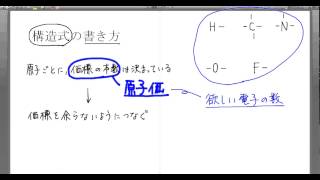 構造式の書き方
原子ごとに,価標の本数は決まっている
原子価
欲しい電子の数
価標を余らないようにつなぐ
H-  -C-  -N-
-O-  F-